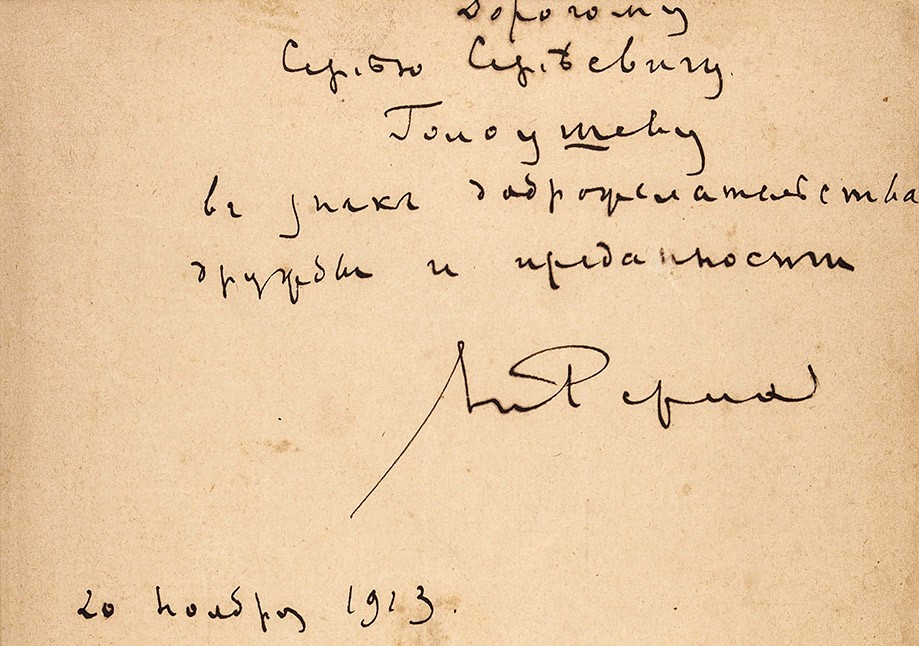 Дорогому
Сергѣю Сергѣевичу
Голоушеву
въ знакъ доброжелательства
дружбы и преданности
20 ноября 1913.